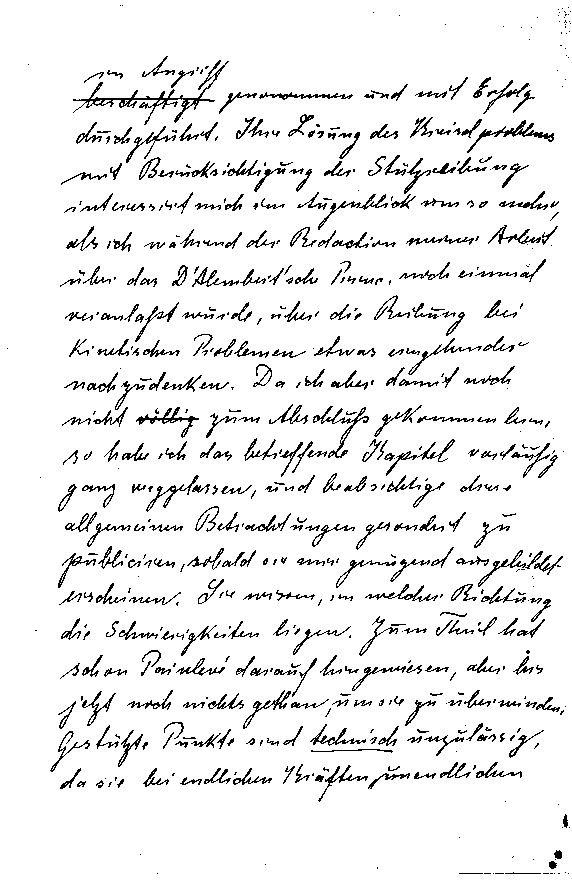 in Angriff
beschäftigt genommen und mit Erfolg
durchgeführt. Ihre Lösung des Kreiselproblems
mit Berücksichtigung der Stützreibung
interessirt mich im Augenblick um so mehr,
als ich während der Redaction meiner Arbeit
über das D'Alembert'sche Princ. noch einmal
veranlaßt wurde, über die Reibung bei
kinetischen Problemen etwas eingehender
nachzudenken. Da ich aber damit noch
nicht völlig zum Abschluß gekommen bin,
so habe ich das betreffende Kapitel vorläufig
ganz weggelassen, und beabsichtige diese
allgemeinen Betrachtungen gesondert zu
publiciren, sobald sie mir genügend ausgebildet
erscheinen. Sie wissen, in welcher Richtung
die Schwierigkeiten liegen. Zum Theil hat
schon Painlevé darauf hingewiesen, aber bis
jetzt noch nichts gethan, um sie zu überwinden.
Gestützte Punkte sind technisch unzulässig,
da sie bei endlichen Kräften unendlichen